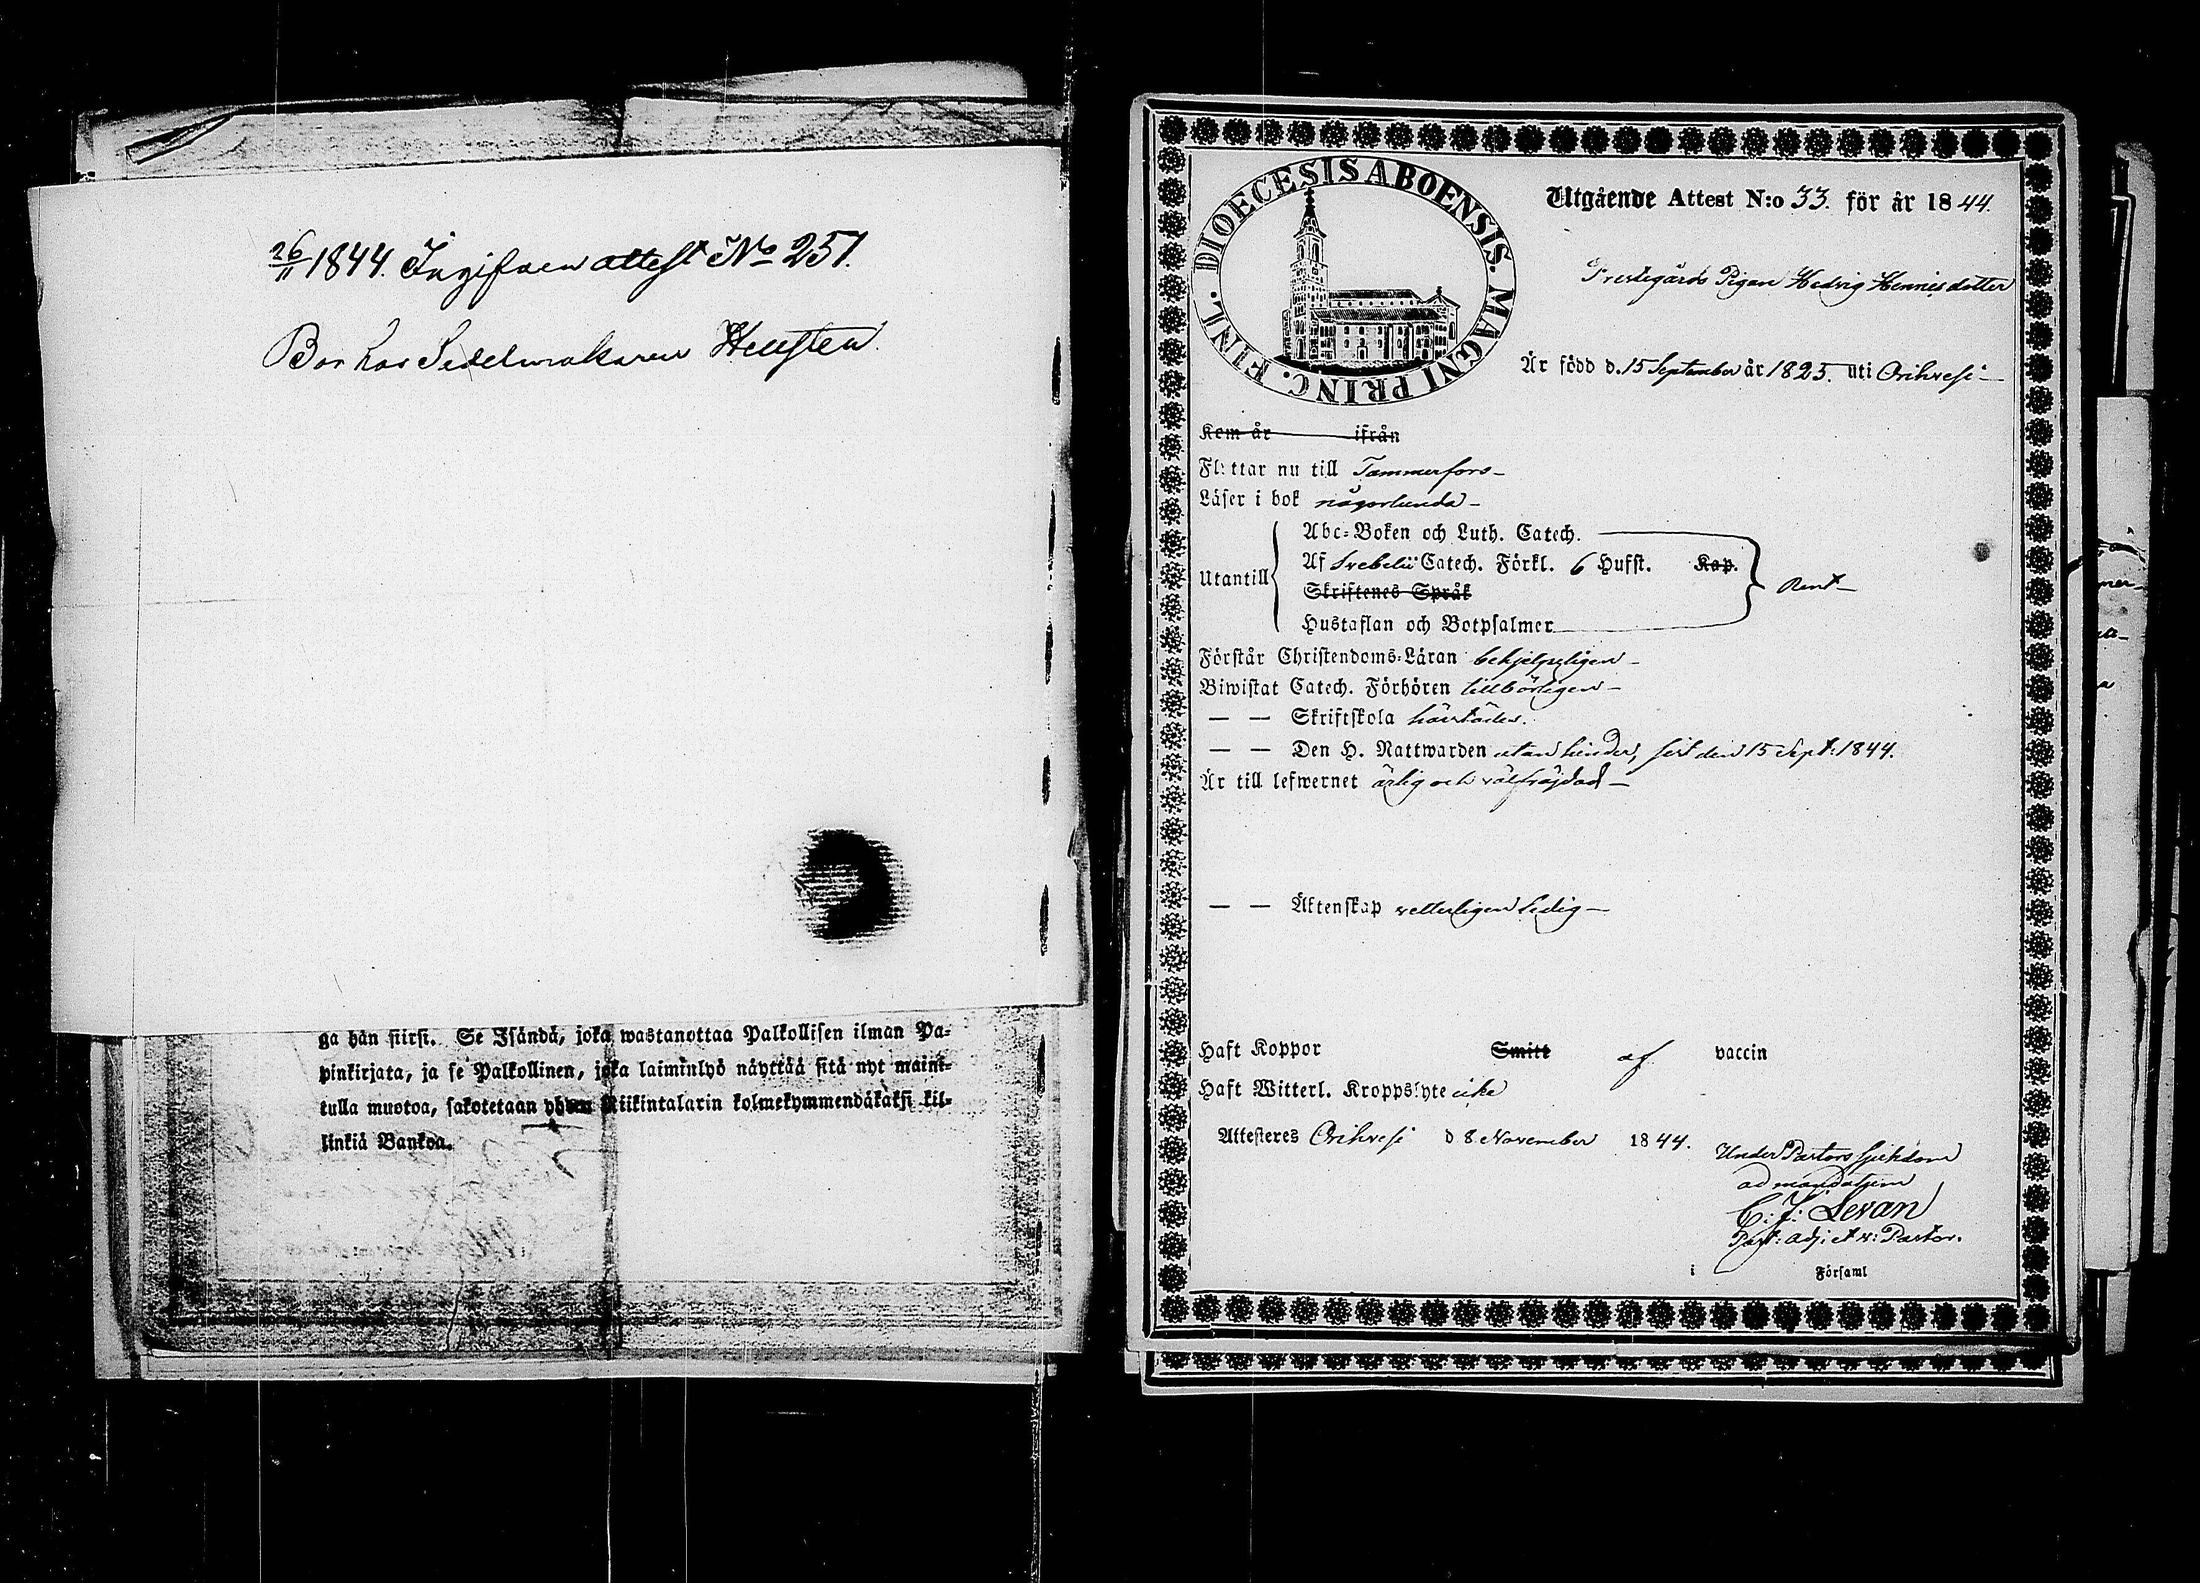 26/11 1844. Ingifven attest No 251.
Bor hos Sadelmakaren Hellsten.
ga hän siirsi. Se Isändä, joka wastanottaa Palkollisen ilman Pa-
pinkirjata, ja se Palkollinen, joka laiminlyö näyttää sitä nyt maini-
tulla muotoa, sakotetaan yhden Riikintalarin kolmekymmendäkaksi kil-
linkiä Bankoa.
DIOECESIS ABOENSIS. MAGNI PRINC. FINL.
Utgående Attest N:o 33. för år 1844.
Prestegårds Pigan Hedvig Hennisdotter
Är född d. 15 September år 1825. uti Orihvesi
Kom år ifrån
Flyttar nu till Tammerfors
Läser i bok någorlunda
Abc-Boken och Luth. Catech.
Utantill Af Svebelii Catech. Förkl. 6 Hufst. Kap. Rent
Skriftenes Språk
Hustaflan och Botpsalmer
Förstår Christendoms-Läran behjelpligen
Biwistat Catech. Förhören tillbörligen
— — Skriftskola härstädes.
— — Den H. Nattwarden utan hinder, sist den 15 Sept: 1844.
Är till lefwernet ärlig och välfräjdad
— — Äktenskap vetterligen ledig
Haft Koppor Smitt af vaccin
Haft Witterl. Kroppslyte icke
Attesteres Orihvesi d 8 November 1844.
Under Pastors sjukdom
ad mandatum
C: J: Levan
Past: adj: et v: Pastor.
i Församl